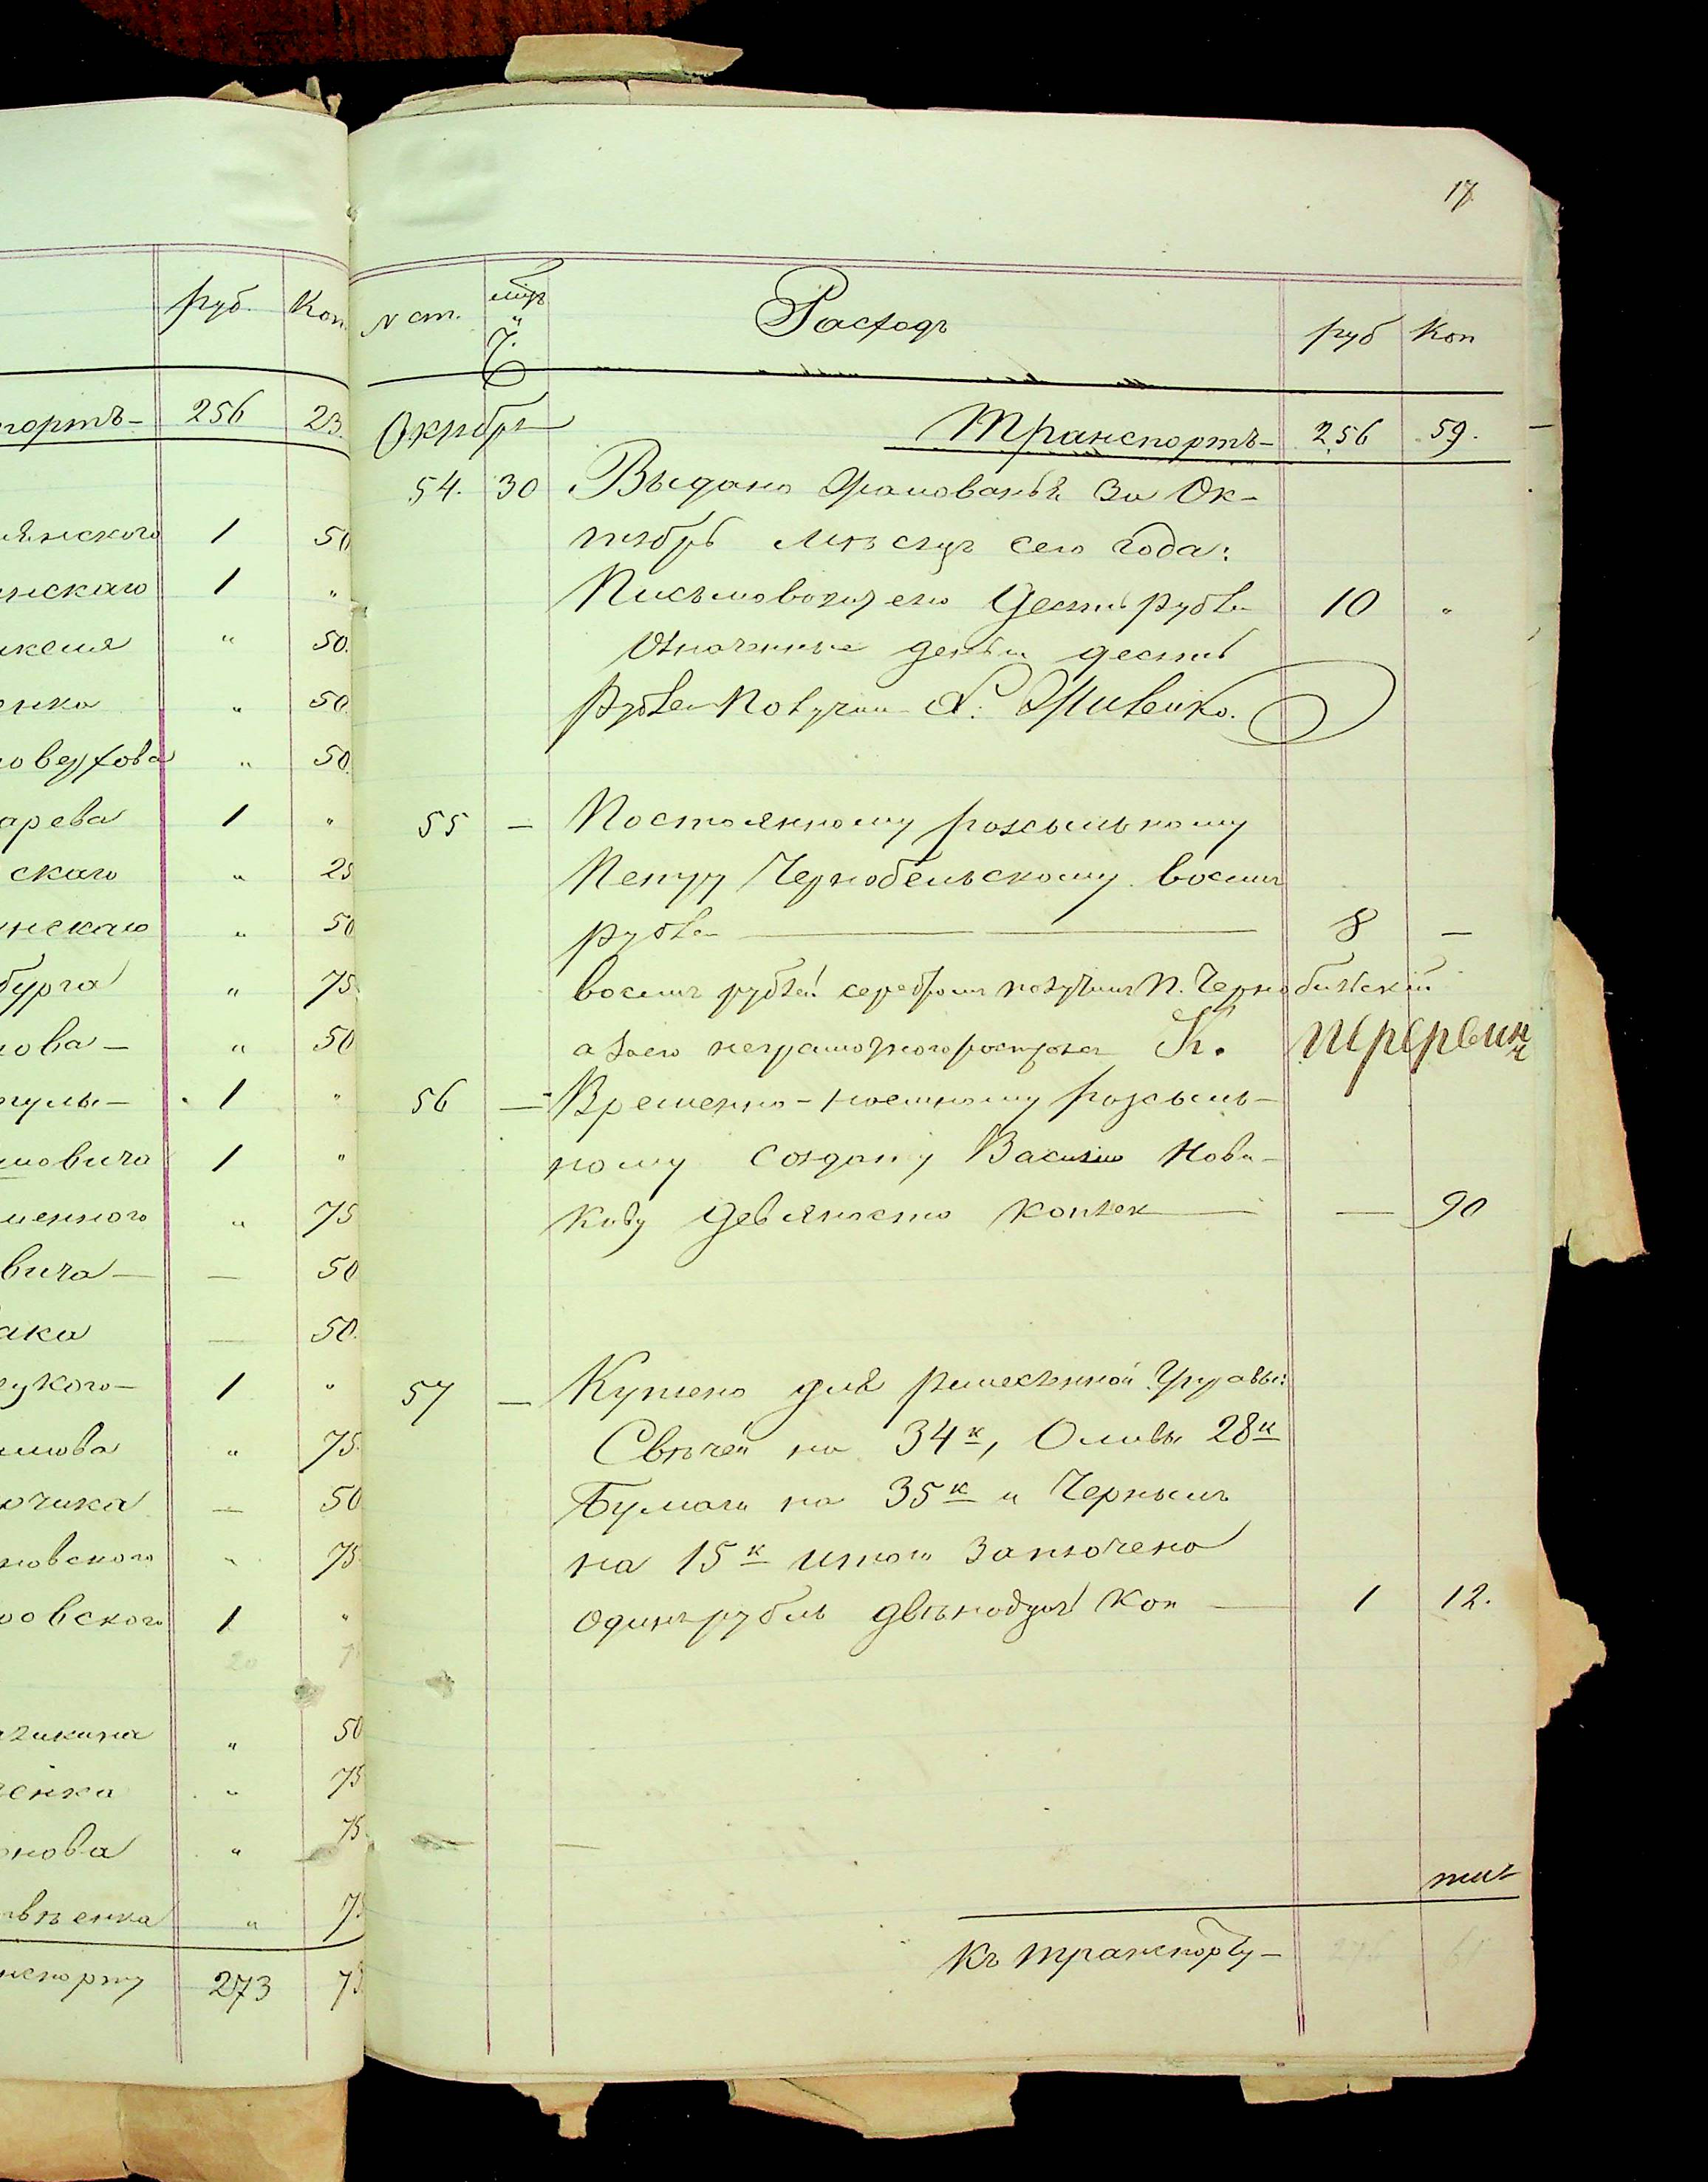 руб. Коп.
портъ- 256 23.
янского 1 50
нскаго 1 "
" 50.
енка " 50.
оверхова " 50.
арева 1 "
скаго " 25
нскаго " 50
бурга " 75
нова- " 50
1 "
мовича 1 "
менного " 75
вича - — 50
ака — 50.
цкого- 1 "
имова " 75.
рчика — 50
новского " 75
ровского 1 "
20
чикина " 50
ченка " 75
онова " 75
" 75
нспорту 273 75
17
N ст. мцъ Ч. Расходъ руб Коп
Октябрь Транспортъ- 256 59.
54. 30 Выдано Жалованья За Ок-
тябрь месяцъ сего года:
Письмоводителю Десять рублей 10 "
Означенные деньги десять
рублей Получил
55 — Постоянному розсыльному
Петру Чернобельскому восемь
рублей 8 —
восемь рублей серебромъ получилъ П. Чернобильскій
а за его неграмотного росписался К.
56 — Временно-наемному розсыль-
ному Солдату Василию Нова-
кову Девяносто копеек — 90
57 — Куплено для ремесленной Управы:
Свечей на 34к, Оливы 28к
Бумаги на 35к и Чернылъ
на 15к итого Заплочено
одинъ рубль двенадцать Коп 1 12.
Къ транспорту- 276 61